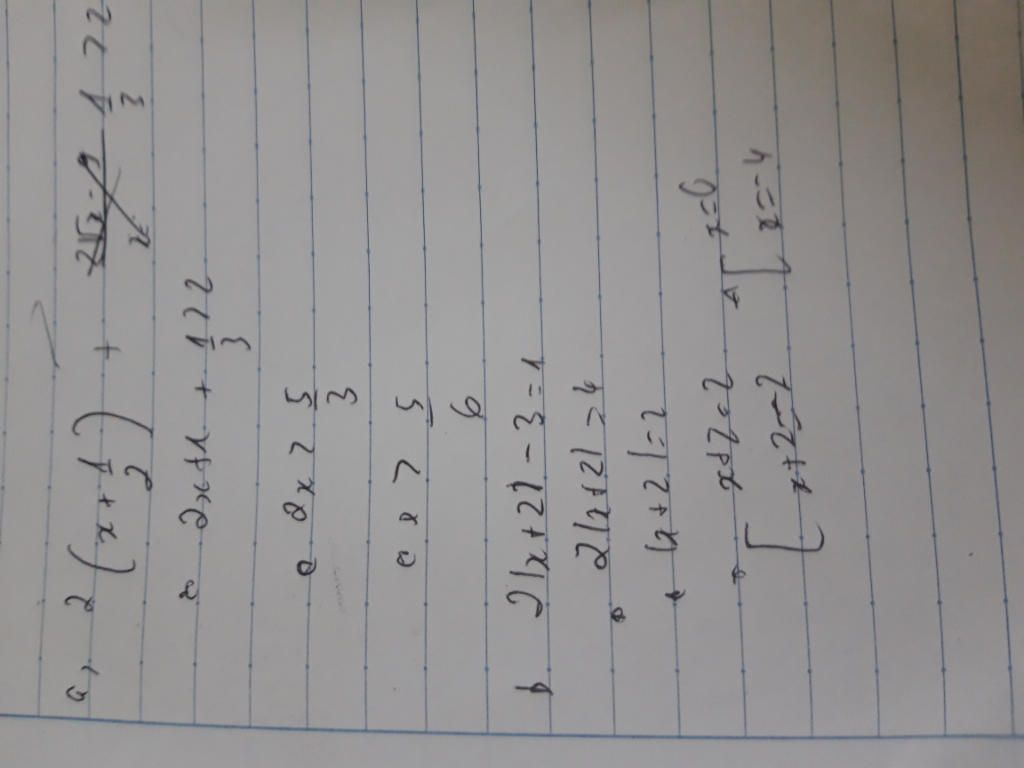 a, 2 (x + 1/2) + 1/3 > 2
2x + 1 + 1/3 > 2
2x > 5/3
x > 5/6
b 2|x+2| - 3 = 1
2|x+2| = 4
|x+2| = 2
[ x+2=2 [ x=0
x+2=-2 x=-4